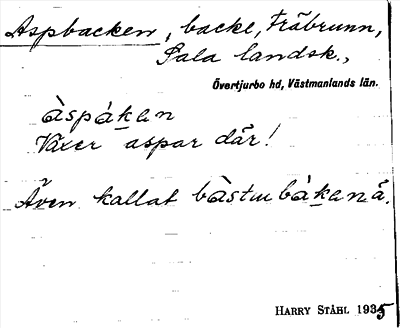 Aspbacken, backe, Träbrunn,
Sala landsk.,
Övertjurbo hd, Västmanlands län.
àspákan
Växer aspar där!
Även kallat bàstubákana.
HARRY STÅHL 1935